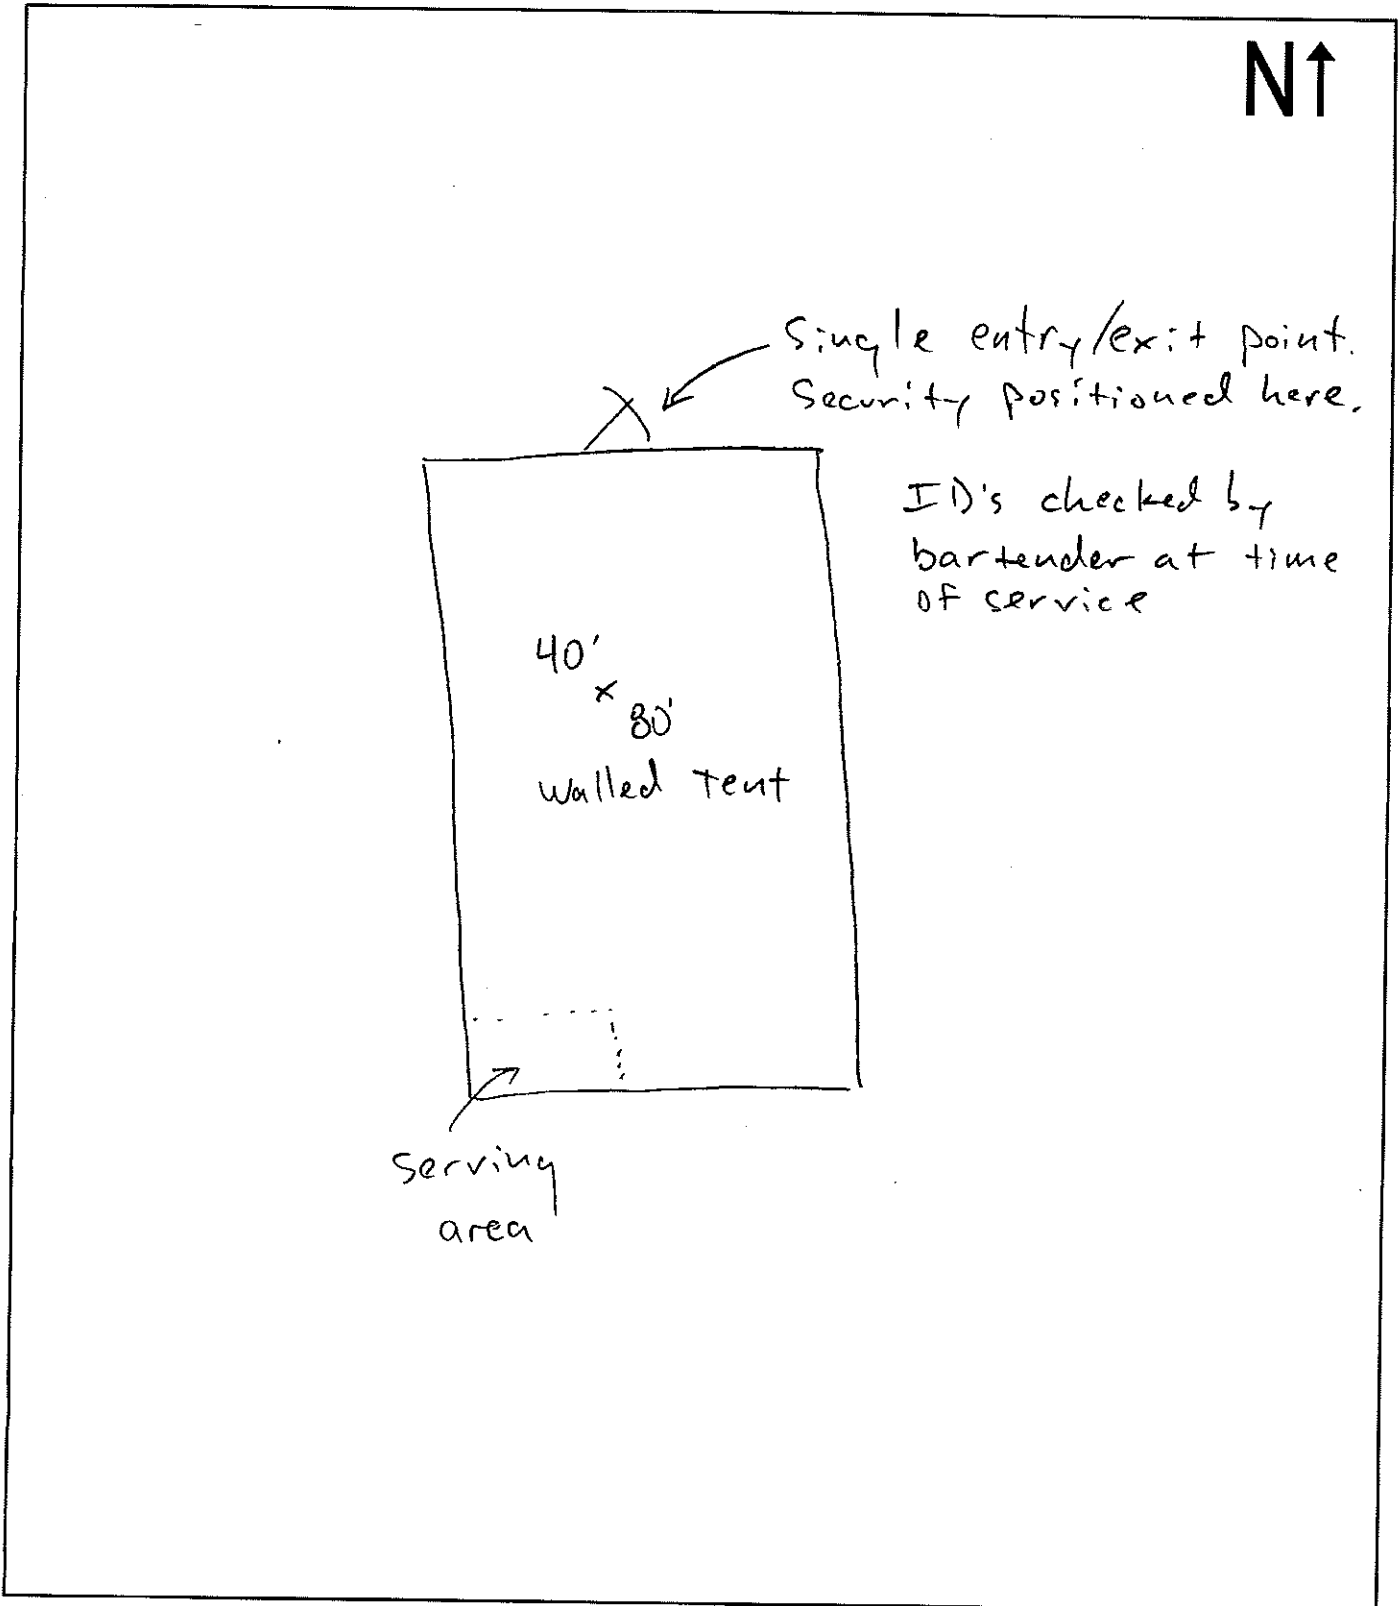 N↑
Single entry/exit point.
Security positioned here.
ID's checked by
bartender at time
of service
40'
x
80'
Walled Tent
Serving
area